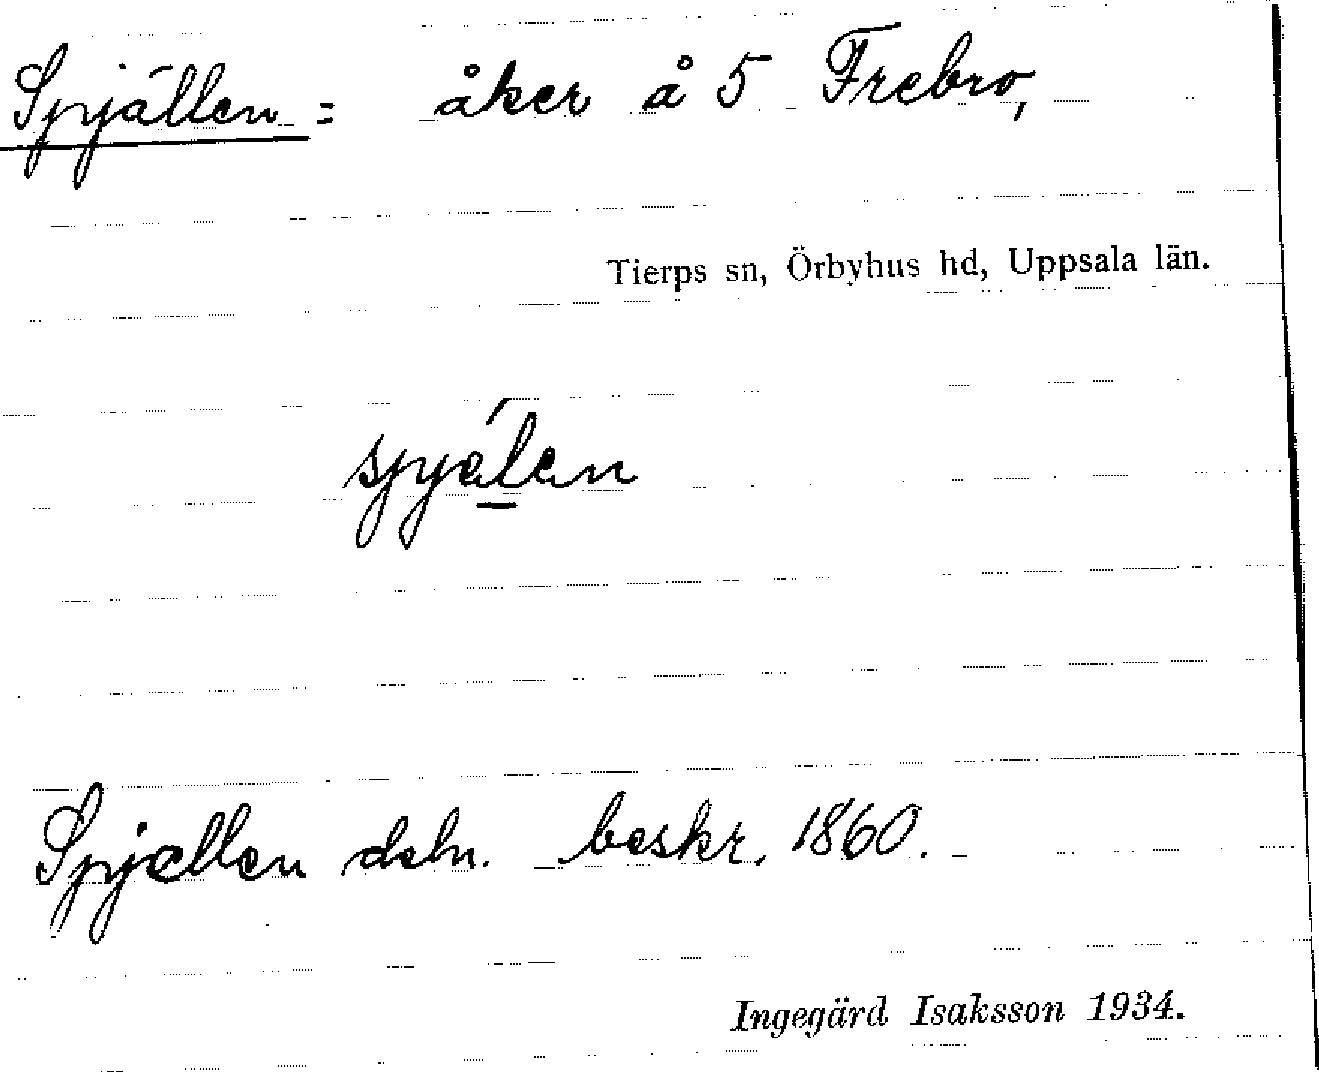 Spjällen = åker å 5 Frebro,
Tierps sn, Örbyhus hd, Uppsala län.
spjälen
Spjellen deln. beskr. 1860.
Ingegärd Isaksson 1934.